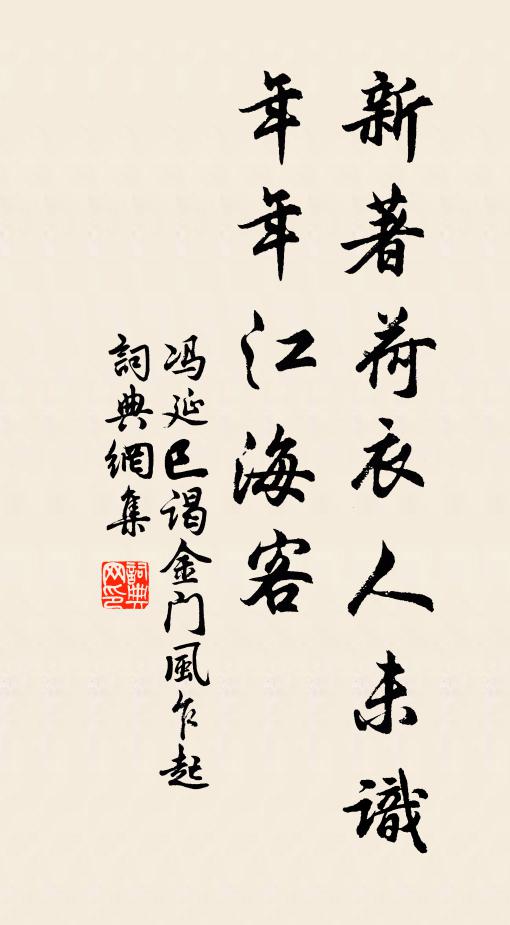 新著荷衣人未識
年年江海客
冯延巳谒金门風乍起
詞典網集
詞典网印